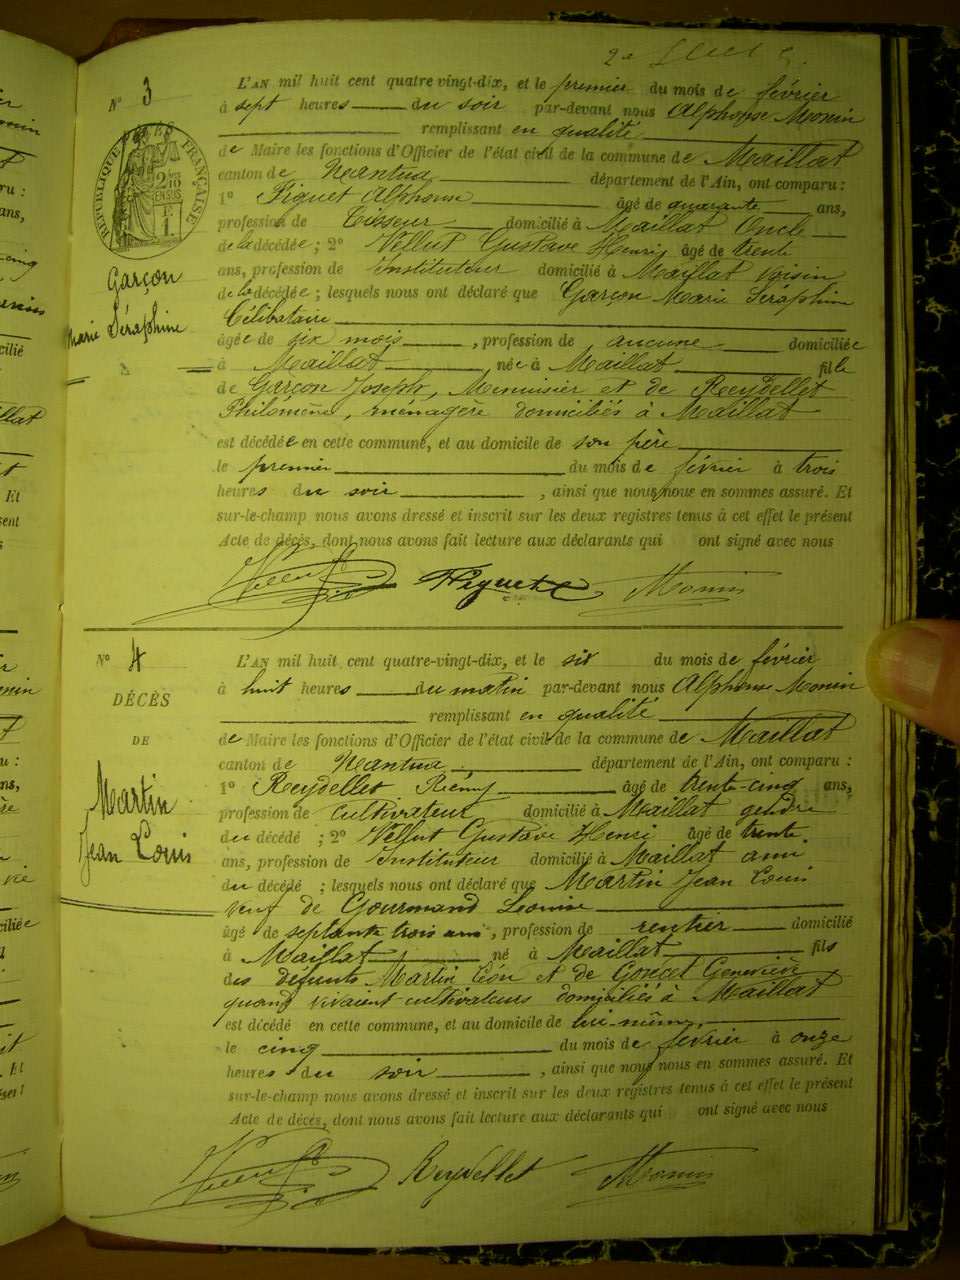 2e
N° 3
DÉCÈS
RÉPUBLIQUE FRANÇAISE
2/10 EN SUS
F. 1
Garçon
Marie Séraphine
L'AN mil huit cent quatre vingt-dix, et le premier du mois de février
à sept heures du soir par-devant nous Alphonse Monin
remplissant en qualité
de Maire les fonctions d'Officier de l'état civil de la commune de Maillat
canton de Nantua département de l'Ain, ont comparu :
1° Piguet Alphonse âgé de quarante ans,
profession de Tisseur domicilié à Maillat Oncle
de la décédée ; 2° Vellut Gustave Henri âgé de trente
ans, profession de Instituteur domicilié à Maillat voisin
de la décédée ; lesquels nous ont déclaré que Garçon Marie Séraphine
Célibataire
âgée de six mois , profession de aucune domiciliée
à Maillat née à Maillat fille
de Garçon Joseph, Menuisier et de Reydellet
Philomène, ménagère domiciliés à Maillat
est décédée en cette commune, et au domicile de son père
le premier du mois de février à trois
heures du soir , ainsi que nous nous en sommes assuré. Et
sur-le-champ nous avons dressé et inscrit sur les deux registres tenus à cet effet le présent
Acte de décès, dont nous avons fait lecture aux déclarants qui ont signé avec nous
Vellut Piguet Monin
N° 4
DÉCÈS
DE
Martin
Jean Louis
L'AN mil huit cent quatre-vingt-dix, et le six du mois de février
à huit heures du matin par-devant nous Alphonse Monin
remplissant en qualité
de Maire les fonctions d'Officier de l'état civil de la commune de Maillat
canton de Nantua département de l'Ain, ont comparu :
1° Reydellet Rémy âgé de trente-cinq ans,
profession de cultivateur domicilié à Maillat gendre
du décédé ; 2° Vellut Gustave Henri âgé de trente
ans, profession de Instituteur domicilié à Maillat ami
du décédé ; lesquels nous ont déclaré que Martin Jean Louis
veuf de Gourmand Léonise
âgé de septante trois ans, profession de rentier domicilié
à Maillat né à Maillat fils
des défunts Martin Léon et de Goncet Geneviève
quand vivaient cultivateurs domiciliés à Maillat
est décédé en cette commune, et au domicile de lui-même,
le cinq du mois de février à onze
heures du soir , ainsi que nous nous en sommes assuré. Et
sur-le-champ nous avons dressé et inscrit sur les deux registres tenus à cet effet le présent
Acte de décès, dont nous avons fait lecture aux déclarants qui ont signé avec nous
Vellut Reydellet Monin